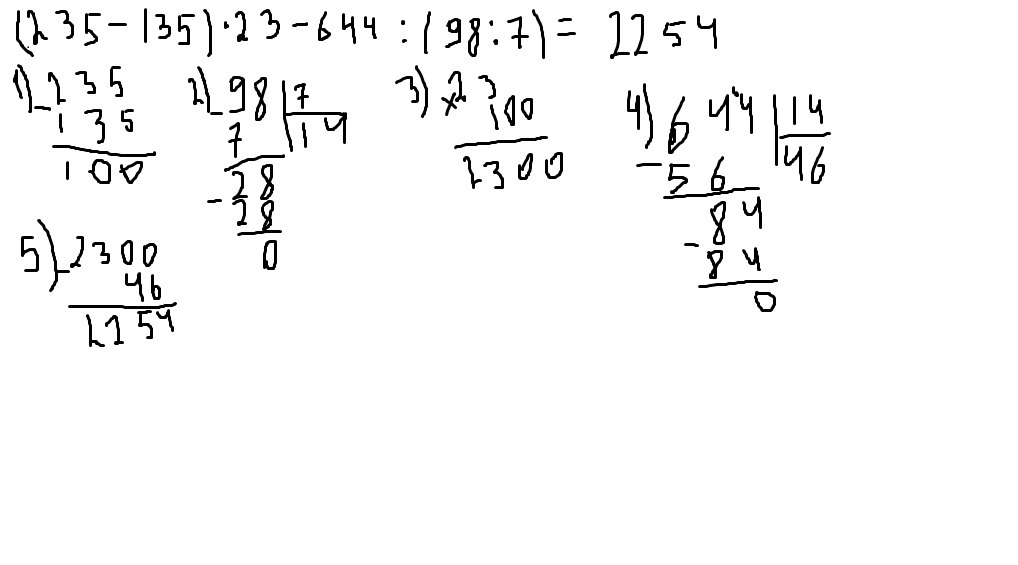 (235-135)·23-644:(98:7)=2254
1) -235
135
100
2) -98 | 7
7 | 14
-28
28
0
3) ×23
100
2300
4) 644 | 14
-56 | 46
84
-84
0
5) -2300
46
2254